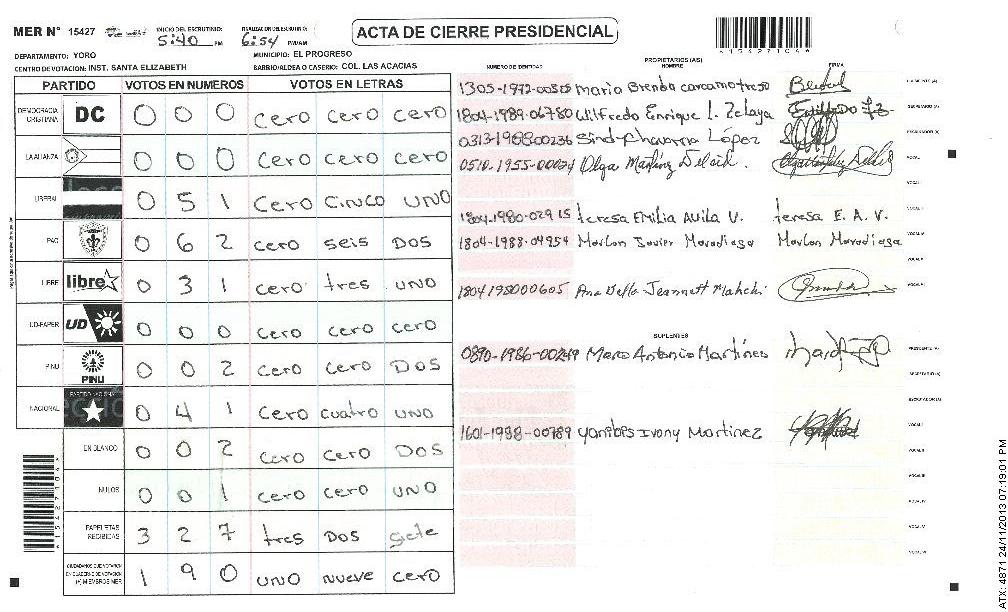 MER N° 15427
INICIO DEL ESCRUTINIO: 5:40 PM
FINALIZACION DEL ESCRUTINIO: 6:54 PM/AM
ACTA DE CIERRE PRESIDENCIAL
DEPARTAMENTO: YORO
MUNICIPIO: EL PROGRESO
CENTRO DE VOTACION: INST. SANTA ELIZABETH
BARRIO/ALDEA O CASERIO: COL. LAS ACACIAS
PARTIDO VOTOS EN NUMEROS VOTOS EN LETRAS
DEMOCRACIA CRISTIANA DC 0 0 0 cero cero cero
LA ALIANZA 0 0 0 cero cero cero
LIBERAL 0 5 1 cero cinco uno
PAC 0 6 2 cero seis Dos
LIBRE libre 0 3 1 cero tres uno
UD-FAPER UD 0 0 0 cero cero cero
PINU PINU 0 0 2 cero cero Dos
NACIONAL 0 4 1 cero cuatro uno
EN BLANCO 0 0 2 cero cero Dos
NULOS 0 0 1 cero cero uno
PAPELETAS RECIBIDAS 3 2 7 tres Dos siete
1 9 0 uno nueve cero
NUMERO DE IDENTIDAD PROPIETARIOS (AS) NOMBRE FIRMA
Mario Brenda
1804-1989-06780 Wilfredo Enrique L. Zelaya
0313-1988-00236 López
Olga
1804-1980-02915 teresa Emilia Avila V. teresa E. A. V.
1804-1988-04954 Marlon Javier Maradiaga Marlon Maradiaga
1804198000605 Ana Jeannett
SUPLENTES
Marco Antonio Martines
1601-1988-00789 Ivony Martinez
ATX: 4871 24/11/2013 07:19:01 PM